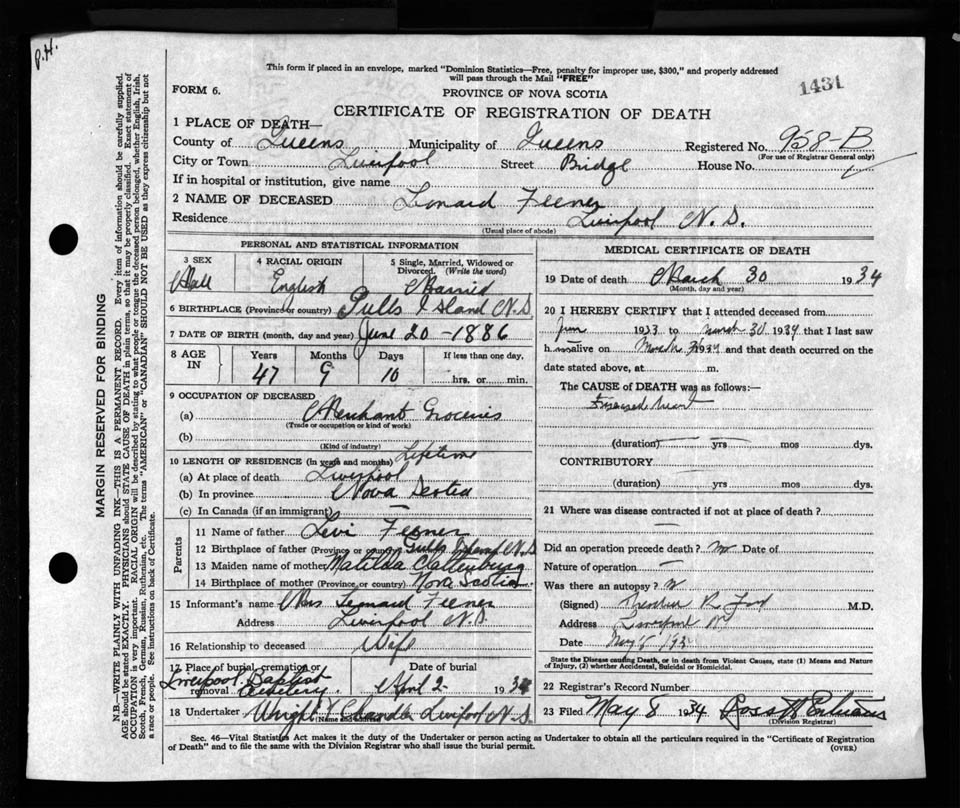 P.H.
This form if placed in an envelope, marked "Dominion Statistics—Free, penalty for improper use, $300," and properly addressed
will pass through the Mail "FREE"
1431
FORM 6.
PROVINCE OF NOVA SCOTIA
CERTIFICATE OF REGISTRATION OF DEATH
1 PLACE OF DEATH—
County of Queens Municipality of Queens Registered No. 958-B
(For use of Registrar General only)
City or Town Liverpool Street Bridge House No.
If in hospital or institution, give name
2 NAME OF DECEASED Leonard Feener
Residence Liverpool N.S.
(Usual place of abode)
PERSONAL AND STATISTICAL INFORMATION
3 SEX
Male
4 RACIAL ORIGIN
English
5 Single, Married, Widowed or
Divorced. (Write the word)
Married
6 BIRTHPLACE (Province or country) Gulls Island N.S.
7 DATE OF BIRTH (month, day and year) June 20-1886
8 AGE
IN
Years Months Days If less than one day,
47 9 10 hrs. or min.
9 OCCUPATION OF DECEASED
(a) Merchant Groceries
(Trade or occupation or kind of work)
(b)
(Kind of industry)
10 LENGTH OF RESIDENCE (in years and months) Lifetime
(a) At place of death Liverpool
(b) In province Nova Scotia
(c) In Canada (if an immigrant) —
Parents
11 Name of father Levi Feener
12 Birthplace of father (Province or country) Gulls Island N.S
13 Maiden name of mother Matilda Clattenburg
14 Birthplace of mother (Province or country) Nova Scotia
15 Informant's name Mrs Leonard Feener
Address Liverpool N.S.
16 Relationship to deceased Wife
17 Place of burial, cremation or
removal Liverpool Baptist
Cemetery
Date of burial
April 2 1934
18 Undertaker Wright & Chandler Liverpool N.S.
(Name and
MEDICAL CERTIFICATE OF DEATH
19 Date of death March 30 1934
(Month, day and year)
20 I HEREBY CERTIFY that I attended deceased from
1933 to March 30 1934 that I last saw
h alive on March 1934 and that death occurred on the
date stated above, at m.
The CAUSE of DEATH was as follows:—
(duration) yrs mos dys.
CONTRIBUTORY
(duration) yrs mos dys.
21 Where was disease contracted if not at place of death?
—
Did an operation precede death? no Date of
Nature of operation —
Was there an autopsy?
(Signed) M.D.
Address Liverpool
Date
State the Disease causing Death, or in death from Violent Causes, state (1) Means and Nature
of Injury, (2) whether Accidental, Suicidal or Homicidal.
22 Registrar's Record Number
23 Filed May 8 1934 Ross W
(Division Registrar)
Sec. 46—Vital Statistics Act makes it the duty of the Undertaker or person acting as Undertaker to obtain all the particulars required in the "Certificate of Registration
of Death" and to file the same with the Division Registrar who shall issue the burial permit.
(OVER)
MARGIN RESERVED FOR BINDING
N.B.—WRITE PLAINLY WITH UNFADING INK—THIS IS A PERMANENT RECORD. Every item of information should be carefully supplied.
AGE should be stated EXACTLY. PHYSICIANS should STATE CAUSE OF DEATH in plain terms, so that it may be properly classified. Exact statement of
OCCUPATION is very important. RACIAL ORIGIN will be described by stating to what people or tongue the deceased person belonged, whether English, Irish,
Scotch, French, German, Russian, Ruthenian, etc. The terms "AMERICAN" or "CANADIAN" SHOULD NOT BE USED as they express citizenship but not
a race or people. See instructions on back of Certificate.